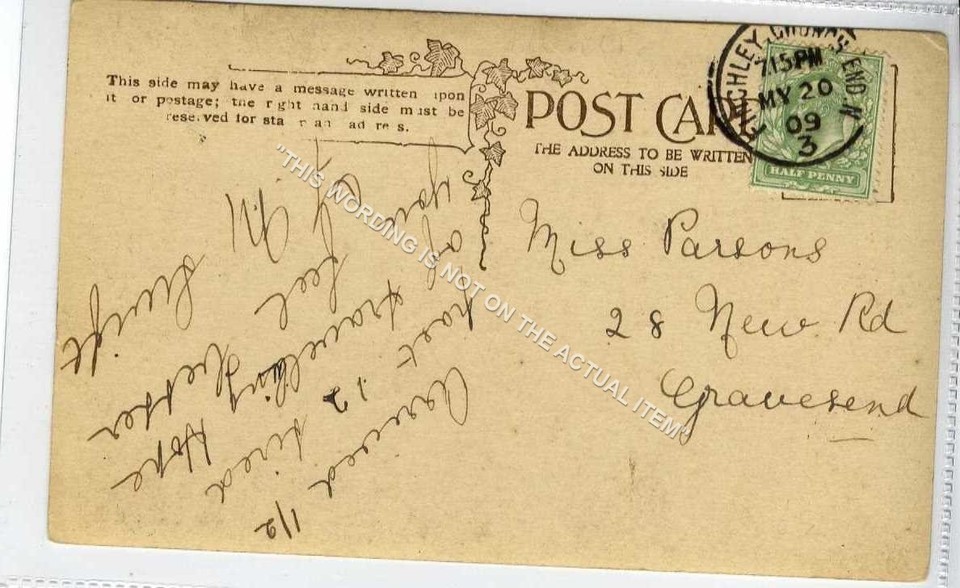 This side may have a message written upon
it for postage; the right hand side must be
reserved for sta an ad res.
POST CARD
THE ADDRESS TO BE WRITTEN
ON THIS SIDE
FINCHLEY CHURCH END.N
7.15PM
MY 20
09
3
HALF PENNY
Miss Parsons
28 New Rd
Gravesend
Arrived 1/2
past 12 tired
of travelling Hope
you feel better
F M Swift
"THIS WORDING IS NOT ON THE ACTUAL ITEM"